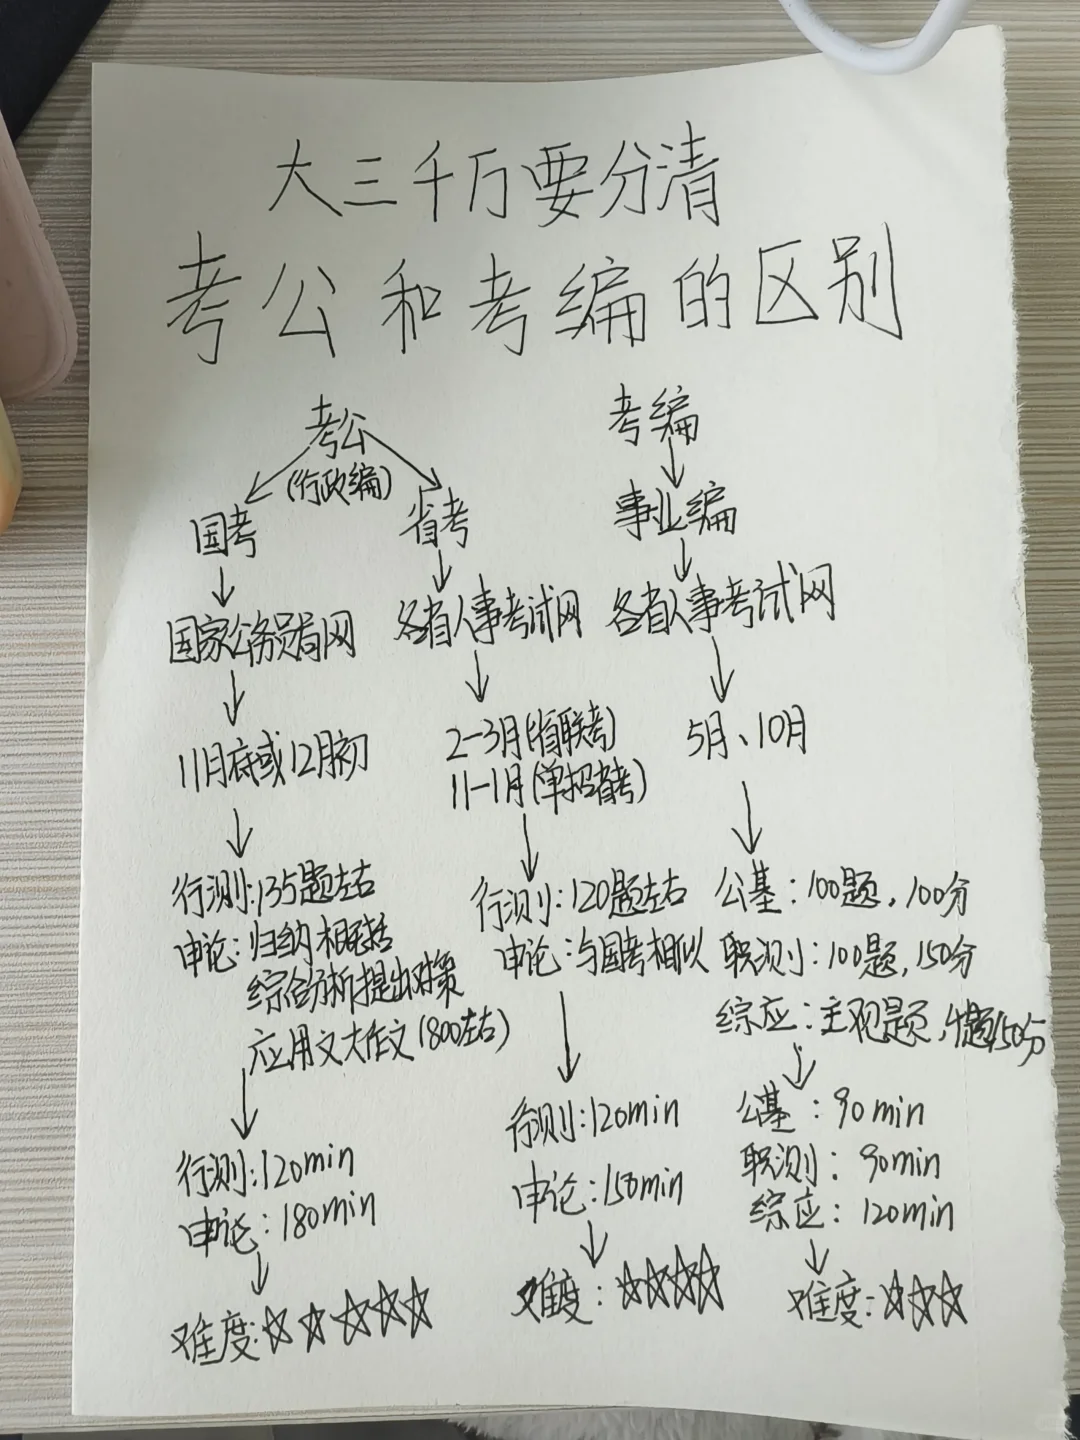 大三千万要分清
考公和考编的区别
考公
(行政编)
国考
国家公务员局网
11月底或12月初
行测:135题左右
申论:归纳相概括
综合分析提出对策
应用文大作文(800左右)
行测:120min
申论:180min
难度:☆☆☆☆☆
省考
各省人事考试网
2-3月(省联考)
11-1月(单招省考)
行测:120题左右
申论:与国考相似
行测:120min
申论:150min
难度:☆☆☆☆
考编
事业编
各省人事考试网
5月、10月
公基:100题,100分
职测:100题,150分
综应:主观题,题150分
公基:90min
职测:90min
综应:120min
难度:☆☆☆